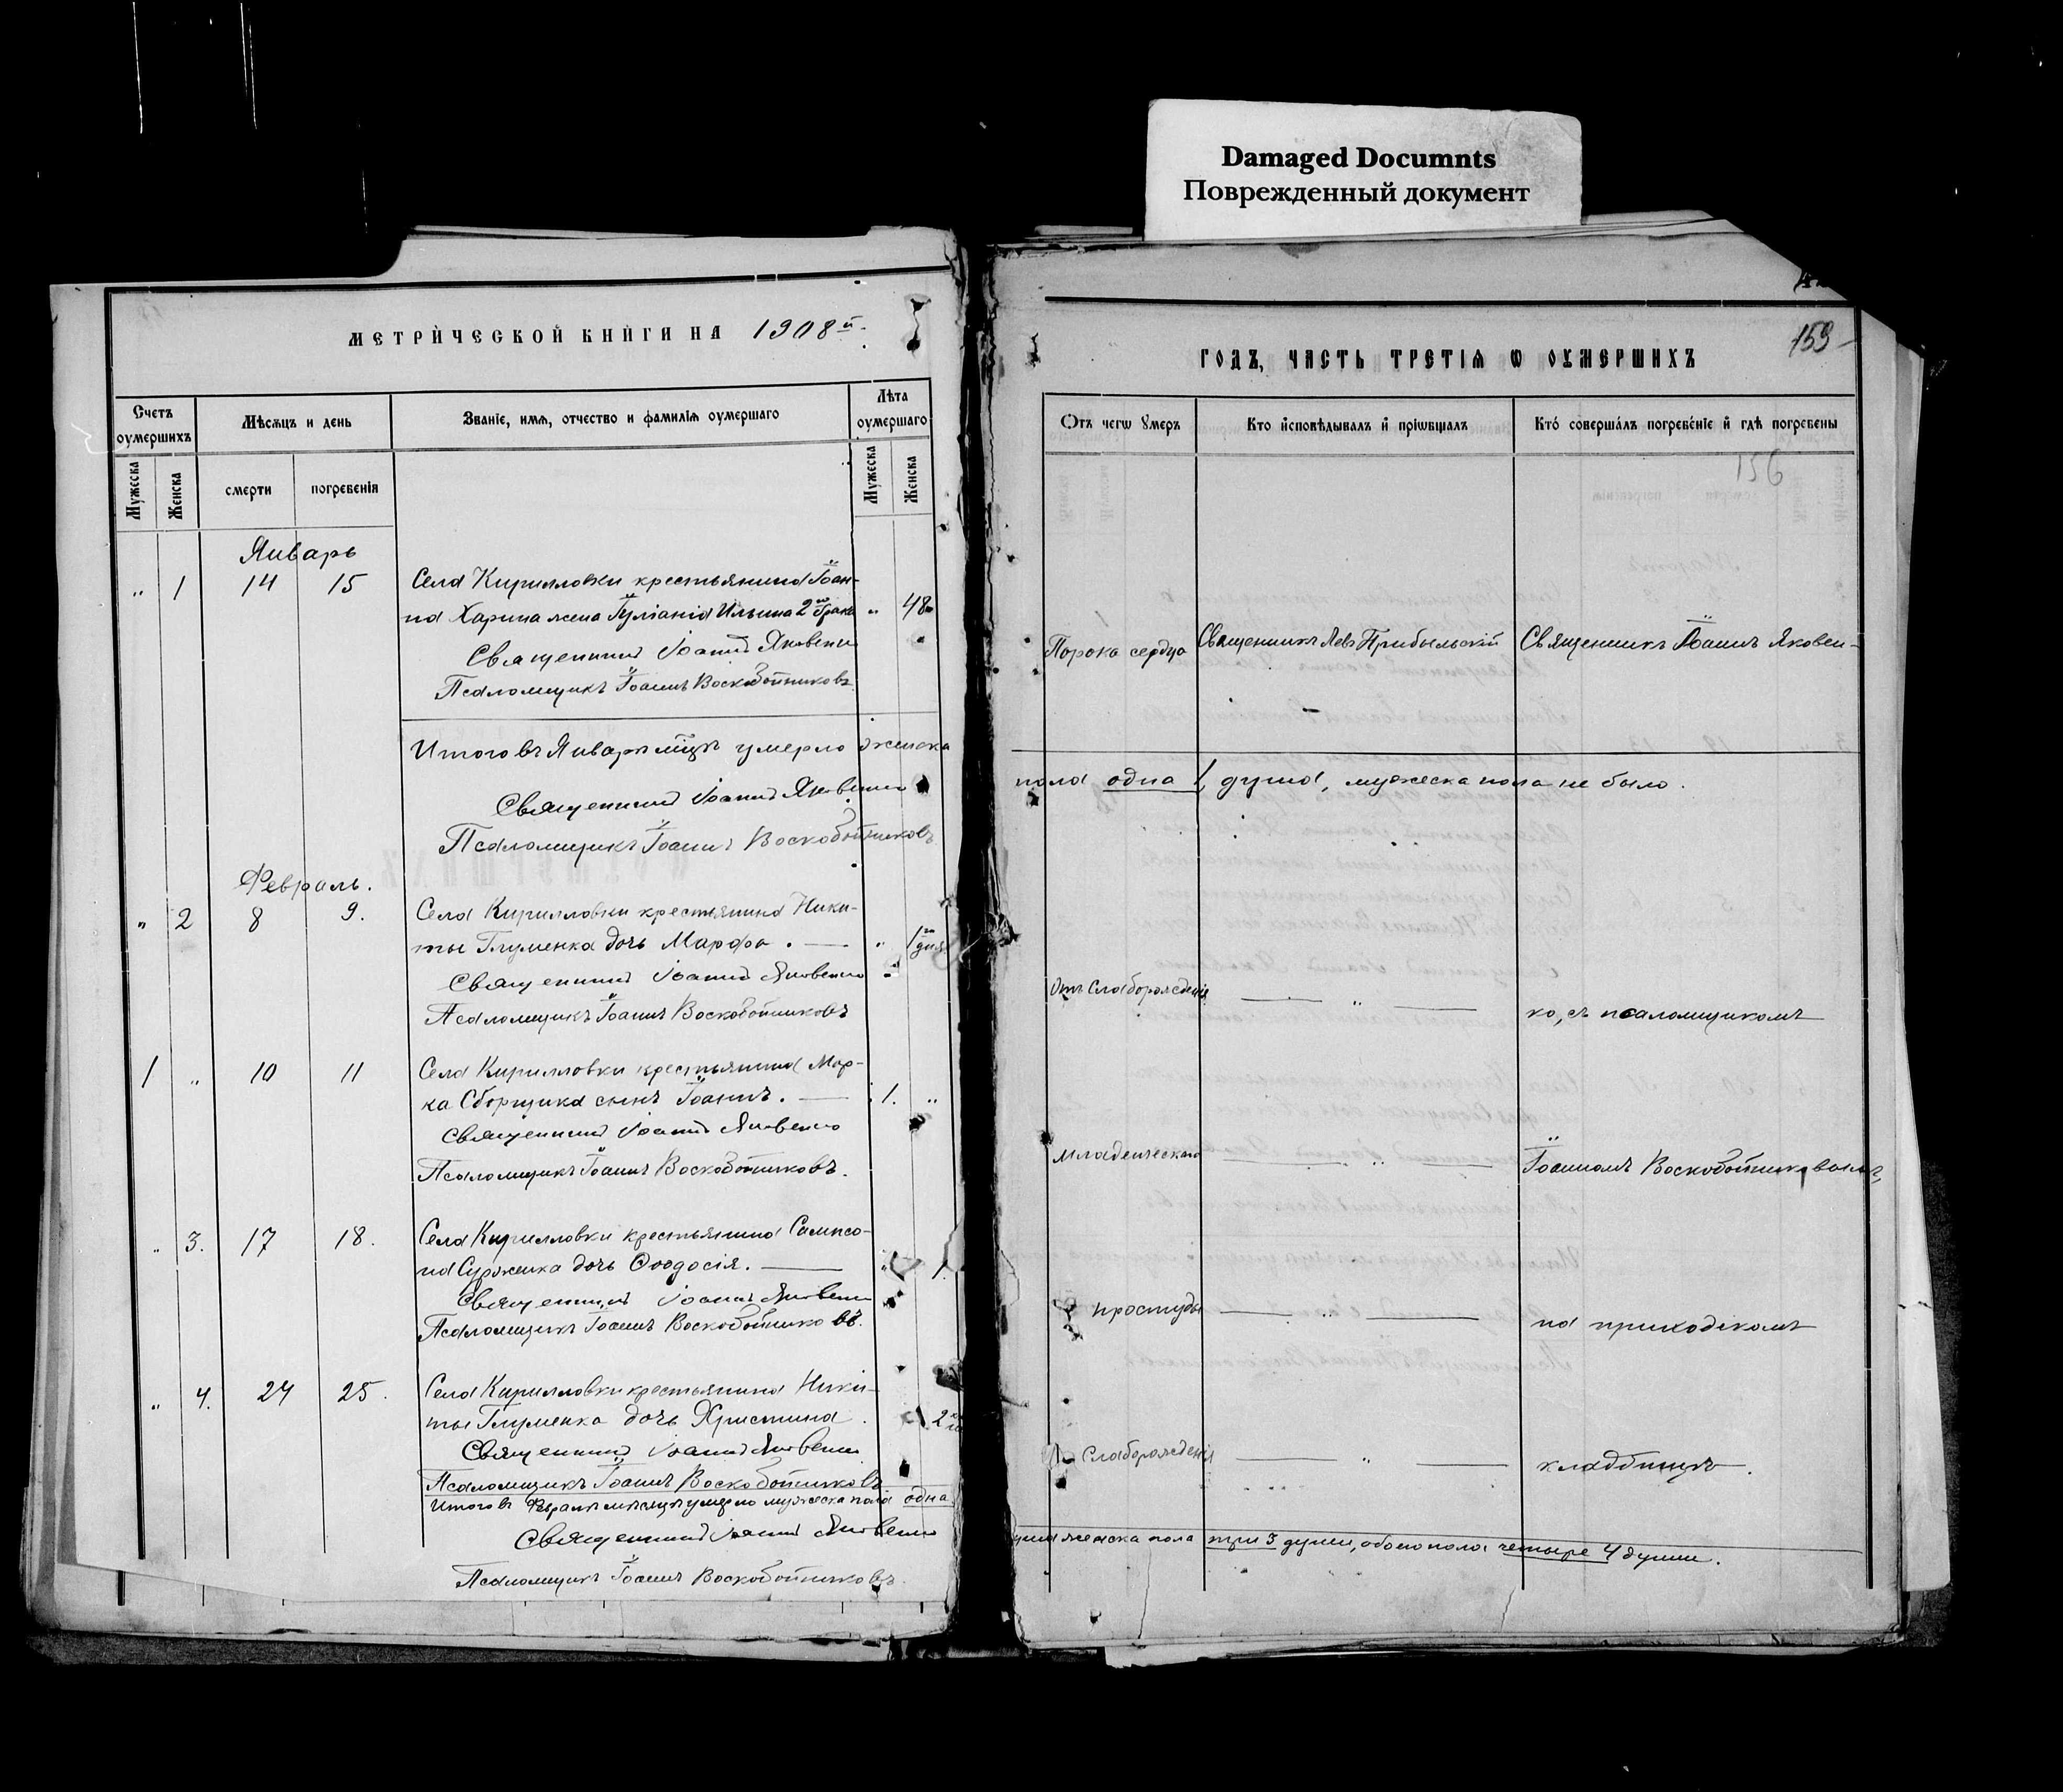 Damaged Documnts
Поврежденный документ
МЕТРИ́ЧЕСКОЙ КНИ́ГИ НА 1908й.
Счетъ оумершихъ
Мѣсяцъ и день
Званіе, имя, отчество и фамилія оумершаго
Лѣта оумершаго
Мужеска
Женска
смерти
погребенія
Мужеска
Женска
Январь
„ 1 14 15 Села Кирилловки крестьянина Іоан-
на Харина жена Іуліанія Ильина 2го брака „ 48
Священникъ Іоаннъ Яковенко
Псаломщикъ Іоаннъ Воскобойниковъ
Итого въ Январѣ мцѣ умерло женска
Священникъ Іоаннъ Яковенко
Псаломщикъ Іоаннъ Воскобойниковъ
Февраль.
„ 2 8 9. Села Кирилловки крестьянина Ники-
ты Глуменка дочь Марѳа. — „ 1го дня
Священникъ Іоаннъ Яковенко
Псаломщикъ Іоаннъ Воскобойниковъ
1 „ 10 11 Села Кирилловки крестьянина Мар-
ка Сборщика сынъ Іоаннъ. — 1. „
Священникъ Іоаннъ Яковенко
Псаломщикъ Іоаннъ Воскобойниковъ.
„ 3. 17 18. Села Кирилловки крестьянина Сампсо-
на дочь Ѳеодосія. — „ 1
Священникъ Іоаннъ Яковенко
Псаломщикъ Іоаннъ Воскобойниковъ.
„ 4. 24 25. Села Кирилловки крестьянина Ники-
ты Глуменка дочь Христина. 2
Священникъ Іоаннъ Яковенко
Псаломщикъ Іоаннъ Воскобойниковъ
Итого въ Февралѣ мѣсяцѣ умерло мужеска пола одна
Священникъ Іоаннъ Яковенко
Псаломщикъ Іоаннъ Воскобойниковъ.
159
ГОДЪ, ЧАСТЬ ТРЕТІЯ Ѡ ОУМЕРШИХЪ
Отъ чегѡ ᲂумеръ
Кто и҆сповѣдывалъ и҆ прїѡбщалъ
Кто́ соверша́лъ погребе́ніе и҆ гдѣ погребены
156
Порока сердца Священникъ Левъ Прибыльскій Священникъ Іоаннъ Яковен-
пола одна 1 душа, мужеска пола не было.
Отъ Слаборожденія — „ — ко, съ псаломщикомъ
Младенческаго — „ — Іоанномъ Воскобойниковымъ,
простуды — „ — на приходскомъ
Слаборожденія — „ — кладбищѣ.
душа женска пола три 3 души, обоего пола четыре 4 души.